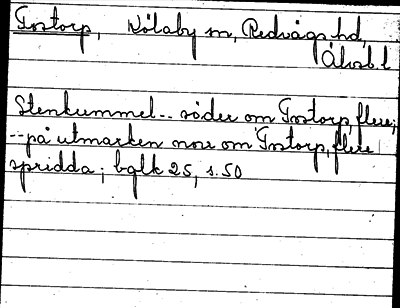 Tostorp, Nölaby sn, Redvägs hd,
Älvsb. l
Stenkummel -- söder om Tostorp, flere;
-- på utmarken norr om Tostorp, flere
spridda; bglk 25, s. 50